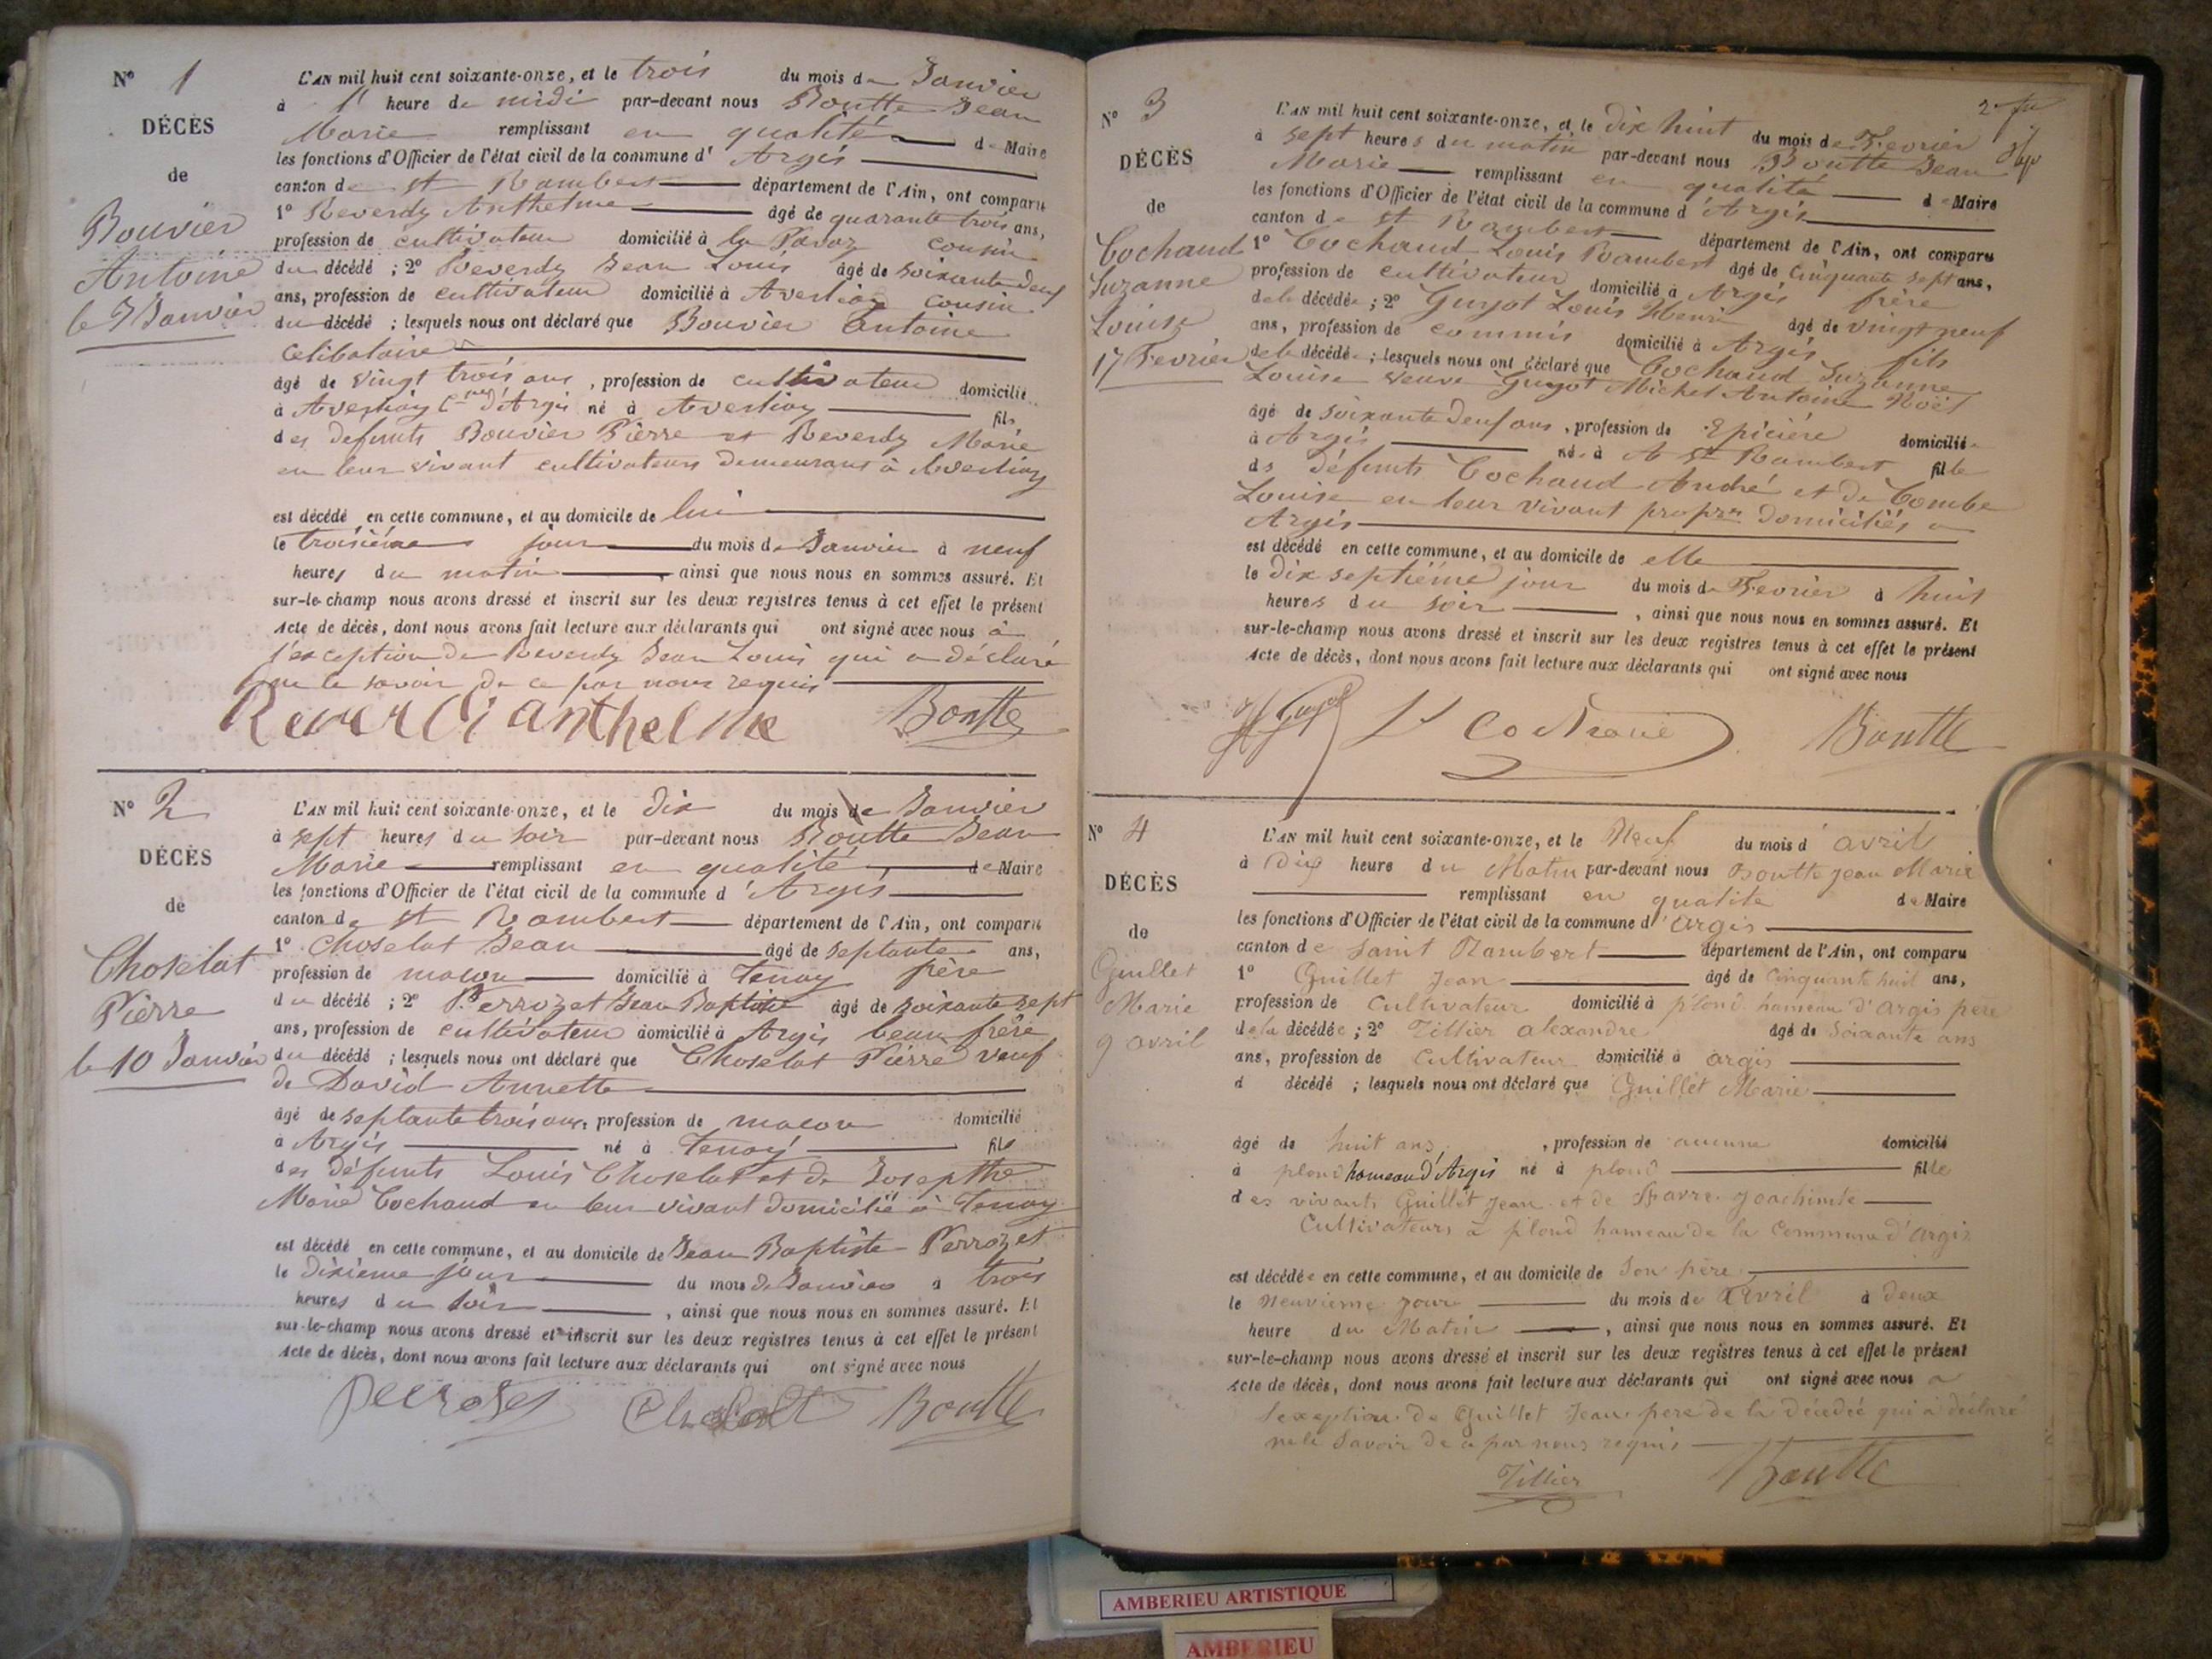 N° 1
DÉCÈS
de
Bouvier
Antoine
le 3 Janvier
L'AN mil huit cent soixante-onze, et le trois du mois de Janvier
à 1 heure de midi par-devant nous Boutte Jean
Marie remplissant en qualité de Maire
les fonctions d'Officier de l'état civil de la commune d' Argis
canton de st Rambert département de l'Ain, ont comparu
1° Reverdy Anthelme âgé de quarante trois ans,
profession de cultivateur domicilié à la cousin
du décédé ; 2° Reverdy Jean Louis âgé de soixante deux
ans, profession de cultivateur domicilié à Averliaz cousin
du décédé ; lesquels nous ont déclaré que Bouvier Antoine
Celibataire
âgé de vingt trois ans , profession de cultivateur domicilié
à Averliaz Cne d'Argis né à Averliaz fils
des defunts Bouvier Pierre et Reverdy Marie
en leur vivant cultivateurs demeurans à Averliaz
est décédé en cette commune, et au domicile de lui
le troisième jour du mois de Janvier à neuf
heures du matin , ainsi que nous nous en sommes assuré. Et
sur-le-champ nous avons dressé et inscrit sur les deux registres tenus à cet effet le présent
Acte de décès, dont nous avons fait lecture aux déclarants qui ont signé avec nous à
l'exception de Reverdy Jean Louis qui a déclaré
ne le savoir de ce par nous requis
Reverdi anthelme Boutte
N° 2
DÉCÈS
de
Choselat
Pierre
le 10 Janvier
L'AN mil huit cent soixante-onze, et le dix du mois de Janvier
à sept heures du soir par-devant nous Boutte Jean
Marie remplissant en qualité de Maire
les fonctions d'Officier de l'état civil de la commune d'Argis
canton de st Rambert département de l'Ain, ont comparu
1° Choselat Jean âgé de septante ans,
profession de macon domicilié à Tenay frère
du décédé ; 2° Perrozet Jean Baptiste âgé de soixante sept
ans, profession de cultivateur domicilié à Argis beau frère
du décédé ; lesquels nous ont déclaré que Choselat Pierre veuf
de David Annette
âgé de septante trois ans, profession de macon domicilié
à Argis né à Tenay fils
des défunts Louis Choselat et de Josephte
Marie Cochaud en leur vivant domicilié à Tenay
est décédé en cette commune, et au domicile de Jean Baptiste Perrozet
le dixieme jour du mois de Janvier à trois
heures du soir , ainsi que nous nous en sommes assuré. Et
sur-le-champ nous avons dressé et inscrit sur les deux registres tenus à cet effet le présent
Acte de décès, dont nous avons fait lecture aux déclarants qui ont signé avec nous
Perrozet Boutte
N° 3
DÉCÈS
de
Cochaud
Suzanne
Louise
17 Fevrier
L'AN mil huit cent soixante-onze, et le dix huit du mois de Fevrier
à sept heures du matin par-devant nous Boutte Jean
Marie remplissant en qualité de Maire
les fonctions d'Officier de l'état civil de la commune d'Argis
canton de st Rambert département de l'Ain, ont comparu
1° Cochaud Louis Rambert âgé de Cinquante sept ans,
profession de cultivateur domicilié à Argis frère
de la décédée ; 2° Guyot Louis Henri âgé de vingt neuf
ans, profession de commis domicilié à Argis fils
de la décédée ; lesquels nous ont déclaré que Cochaud Suzanne
Louise veuve Guyot Michel Antoine Noël
âgé de soixante deux ans , profession de Epiciere domiciliée
à Argis née à A St Rambert fille
de défunts Cochaud André et de Combe
Louise en leur vivant propres domiciliés a
Argis
est décédé en cette commune, et au domicile de elle
le dix septième jour du mois de Fevrier à huit
heures du soir , ainsi que nous nous en sommes assuré. Et
sur-le-champ nous avons dressé et inscrit sur les deux registres tenus à cet effet le présent
Acte de décès, dont nous avons fait lecture aux déclarants qui ont signé avec nous
Guyot L Cochaud Boutte
N° 4
DÉCÈS
de
Guillet
Marie
9 avril
L'AN mil huit cent soixante-onze, et le Neuf du mois d'avril
à dix heure du Matin par-devant nous Boutte Jean Marie
remplissant en qualité de Maire
les fonctions d'Officier de l'état civil de la commune d'argis
canton de Saint Rambert département de l'Ain, ont comparu
1° Guillet Jean âgé de Cinquante huit ans,
profession de Cultivateur domicilié à plond hameau d'argis père
de la décédée ; 2° Tillier alexandre âgé de Soixante ans
ans, profession de Cultivateur domicilié à argis
d décédé ; lesquels nous ont déclaré que Guillet Marie
âgé de huit ans, , profession de aucune domicilié
à plond hameau d'Argis né à plond fille
des vivants Guillet Jean et de Favre Joachimte
Cultivateurs à plond hameau de la Commune d'argis
est décédée en cette commune, et au domicile de son père
le Neuvieme jour du mois de Avril à deux
heure du Matin , ainsi que nous nous en sommes assuré. Et
sur-le-champ nous avons dressé et inscrit sur les deux registres tenus à cet effet le présent
Acte de décès, dont nous avons fait lecture aux déclarants qui ont signé avec nous a
lexeption de Guillet Jean pere de la décedée qui à déclaré
ne le Savoir de ce par nous requis
Tillier Boutte
AMBERIEU ARTISTIQUE
AMBERIEU